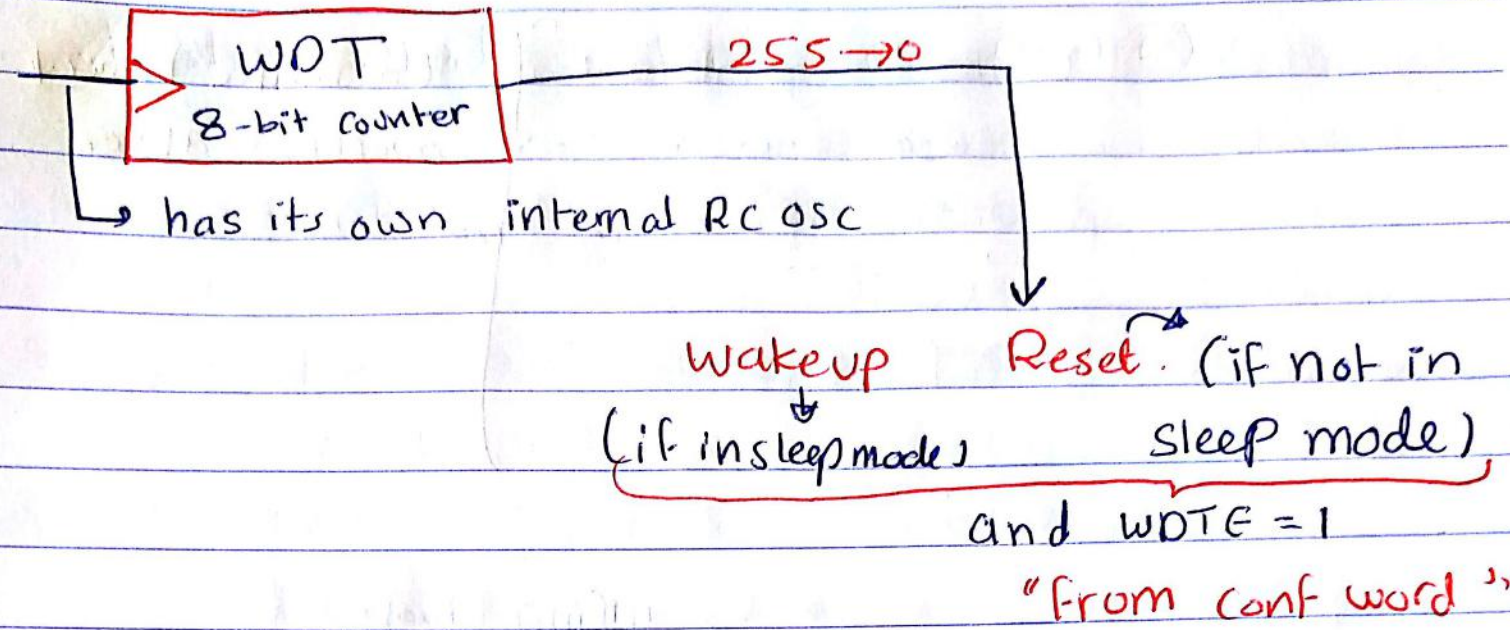 WDT
255→0
8-bit counter
has its own internal RC OSC
Wakeup Reset. (if not in
(if in sleep mode) sleep mode)
and WDTE = 1
"From conf word"